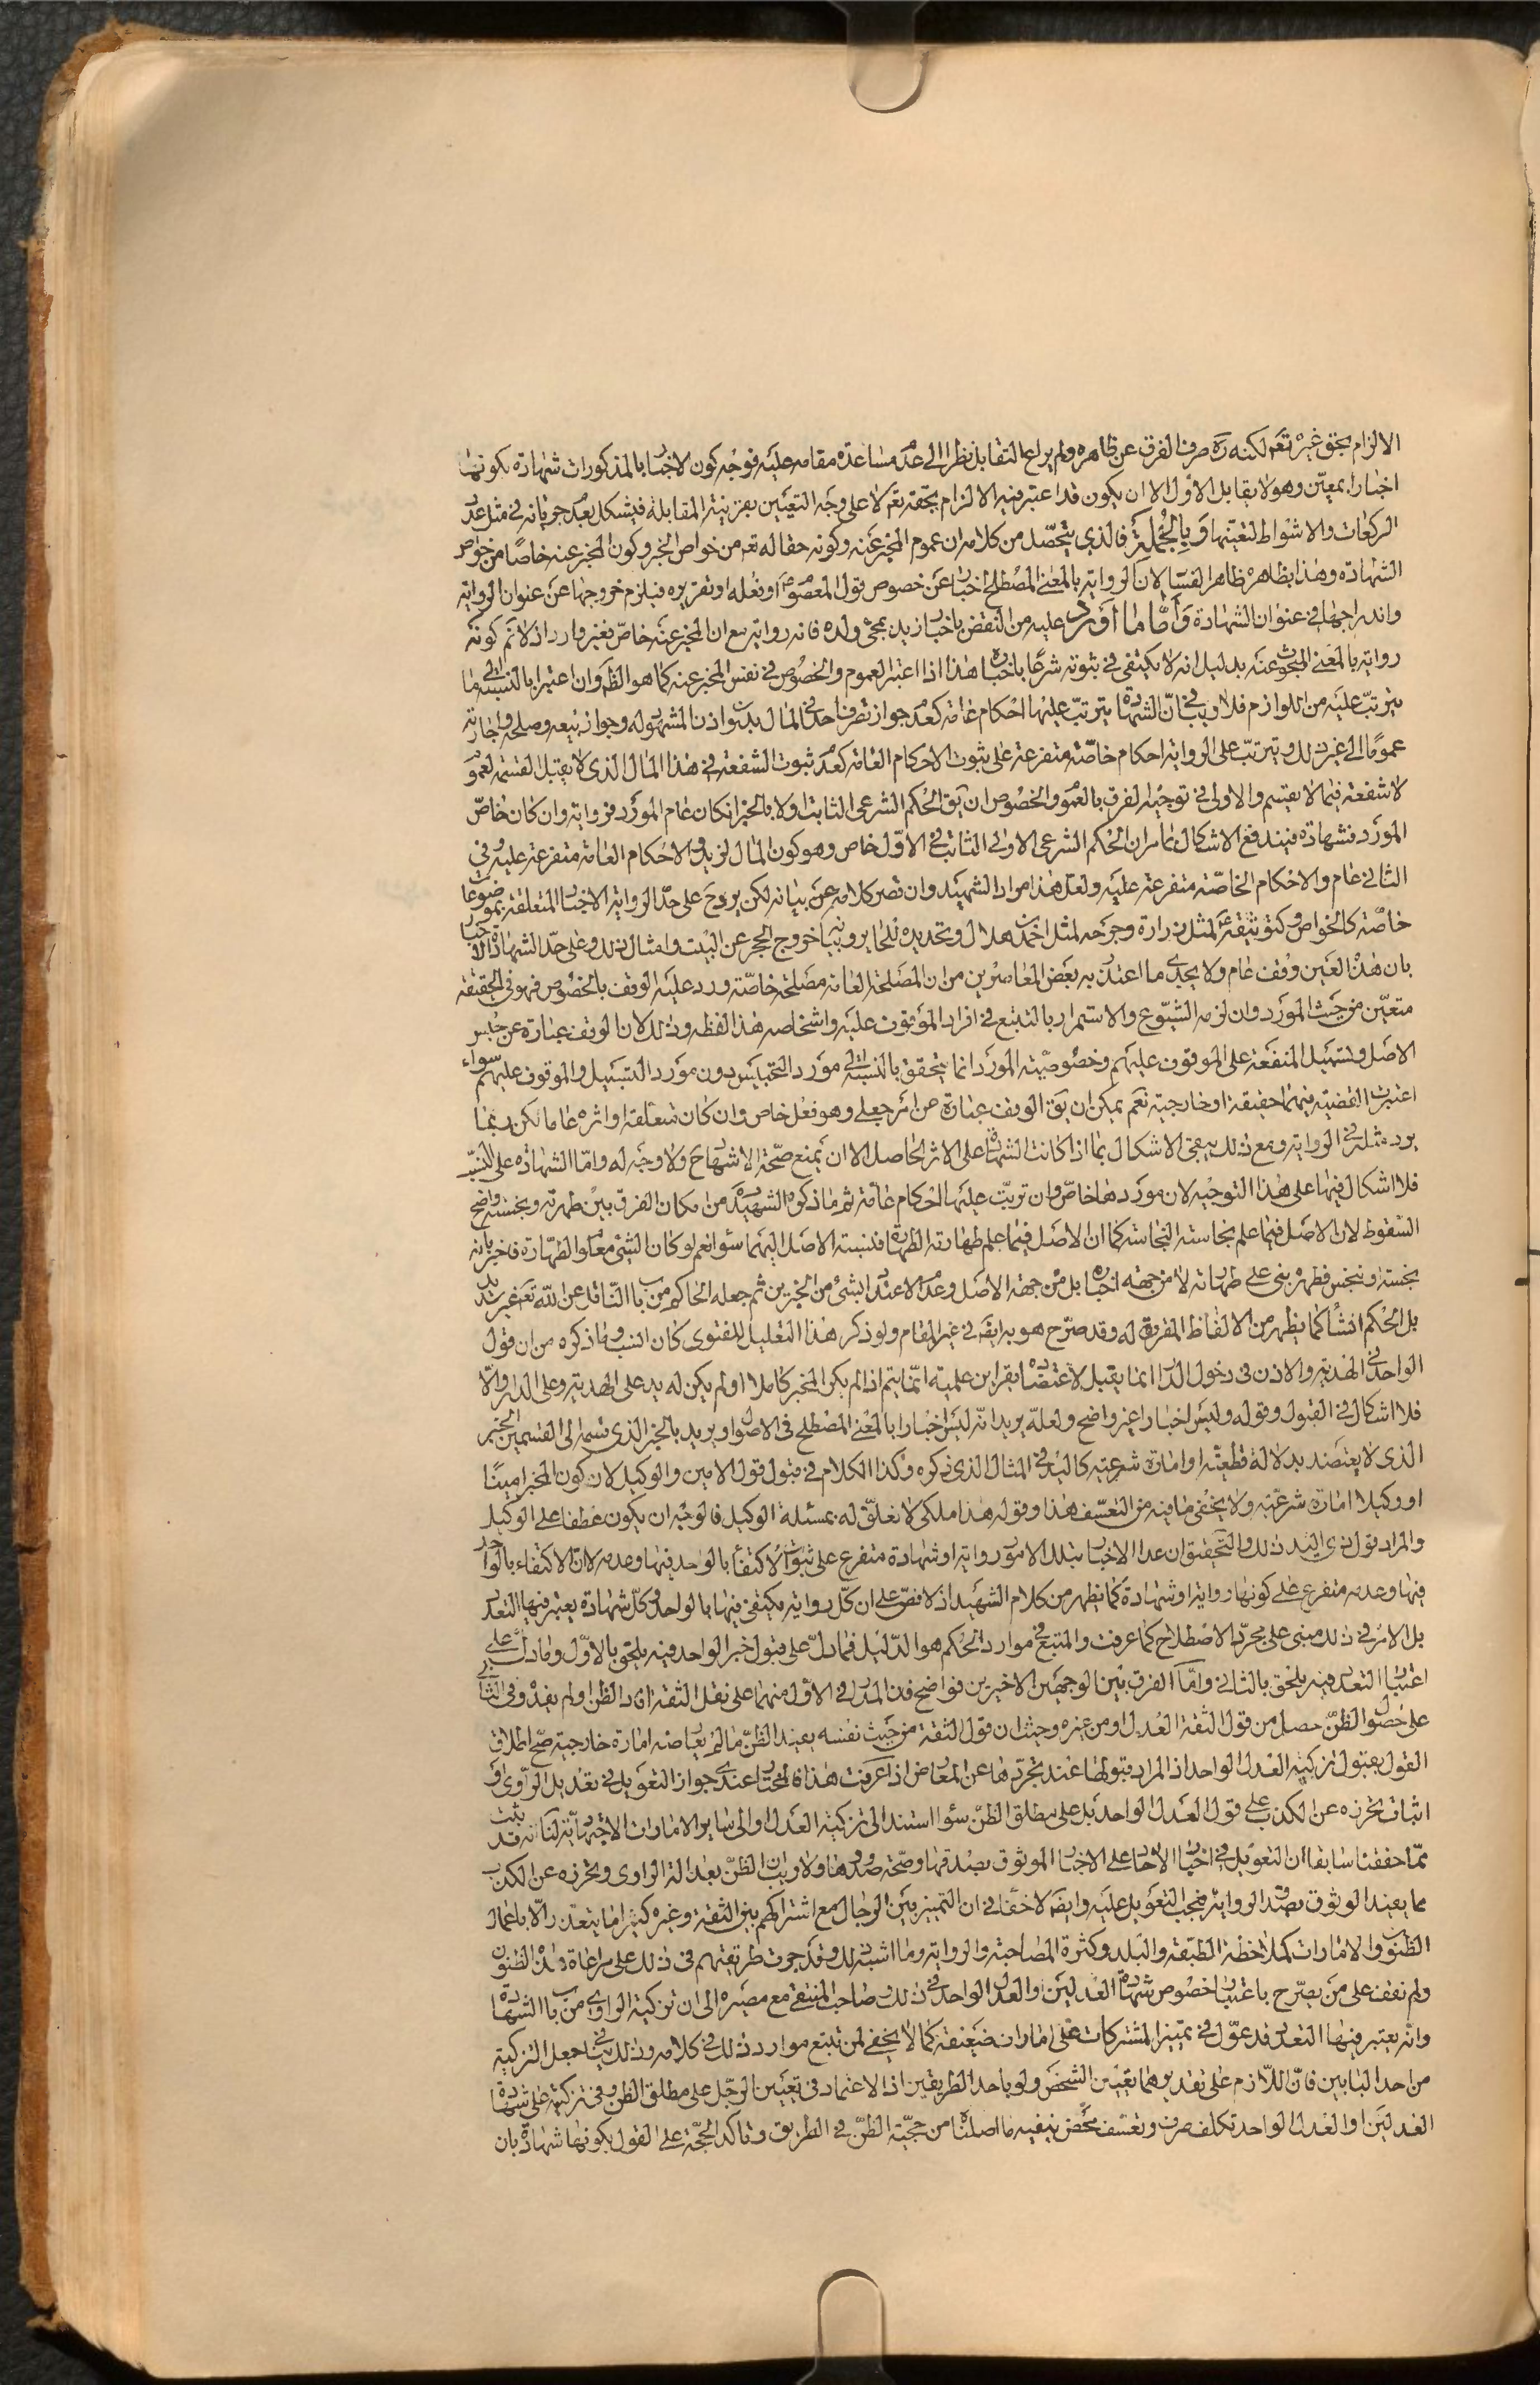 الالزام بحق غيره تعم لكنه ره صرف الفرق عن ظاهره ولم يراع التقابل نظرا الى عدم مساعدة مقامه عليه فوجه كون الاخبار بالمذكورات شهادة بكونها
اخبارا بمعين وهو لا يقابل الاول الا ان يكون قد اعتبر فيه الالزام بحقه تعم لا على وجه التعيين بقرينة المقابلة فيشكل بعد جريانه في مثل عدد
الركعات والاشواط لتعيّنها وبالجملة فالذي يتحصّل من كلامه ان عموم المخبر عنه وكونه حقا له تعم من خواص الخبر وكون المخبر عنه خاصا من خواص
الشهادة وهذا بظاهره ظاهر الفساد لان الرواية بالمعنى المصطلح اخبار عن خصوص قول المعصوم او فعله او تقريره فيلزم خروجها عن عنوان الرواية
واندراجها في عنوان الشهادة وأمّا ما أورد عليه من النقض باخبار زيد بمجئ ولده فانه رواية مع ان المخبر عنه خاصّ فغير وارد اذ لا نم كونه
رواية بالمعنى المبحوث عنه بدليل انه لا يكتفى في ثبوته شرعًا باخباره هذا اذا اعتبر العموم والخصوص في نفس المخبر عنه كما هو الظ وان اعتبرا بالنسبة الى ما
يترتب عليه من اللوازم فلا ريب في ان الشهادة يترتب عليها احكام عامة كعدم جواز تصرف احد في المال بدون اذن المشهود له وجواز بيعه وصلحه واجارته
عمومًا الى غير ذلك ويترتب على الرواية احكام خاصّة متفرعة على ثبوت الاحكام العامة كعدم ثبوت الشفعة في هذا المال الذي لا يقبل القسمة لعموم
لا شفعة فيما لا يقسم والاولى في توجيه الفرق بالعموم والخصوص ان يق الحكم الشرعى الثابت اولا بالخبر انكان عام المورد فرواية وان كان خاصّ
المورد فشهادة فيندفع الاشكال بما مر ان الحكم الشرعى الاولى الثابت في الاوّل خاص وهو كون المال لزيد والاحكام العامة متفرعة عليه وفي
الثاني عام والاحكام الخاصّة متفرعة عليه ولعل هذا مراد الشهيد وان قصر كلامه عن بيانه لكن يرد ح على حدّ الرواية الاخبار المتعلقة بموضوعات
خاصّة كالخواص وكتوثيقه لمثل زرارة وجرحه لمثل احمد بن هلال وتحديده خروج الحجر عن البيت وامثال ذلك وعلى حدّ الشهادة الاخبار
بان هذا العين وقف عام ولا يجدي ما اعتذر به بعض المعاصرين من ان المصلحة العامة مصلحة خاصّة ورد عليه الوقف بالخصوص فهو في الحقيقة
متعيّن من حيث المورد وان لزمه الشيوع والاستمرار بالتتبع في افراد الموقوف عليه واشخاصه هذا لفظه وذلك لان الوقف عبارة عن حبس
الاصل وتسبيل المنفعة على الموقوف عليهم وخصوصية المورد انما يتحقق بالنسبة الى مورد التحبيس دون مورد التسبيل والموقوف عليهم سواء
اعتبرت القضية فيهما حقيقة او خارجية نعم يمكن ان يق الوقف عبارة عن اثر جعلي وهو فعل خاص وان كان متعلقه او اثره عاما لكن ربما
يرد مثله في الرواية ومع ذلك يبقى الاشكال بما اذا كانت الشهادة على الاثر الحاصل الا ان يمنع صحّة الاشهاد ح ولا وجه له وامّا الشهادة على النسب
فلا اشكال فيها على هذا التوجيه لان موردها خاصّ وان ترتب عليها احكام عامة ثم ما ذكره الشهيد من امكان الفرق بين طهرته ونجسته واضح
السقوط لان الاصل فيما علم نجاسته النجاسة كما ان الاصل فيما علم طهارته الطهارة فنسبة الاصل اليهما سواء نعم لو كان الشئ معلوم الطهارة فاخبر بانه
نجسته او نجس فطهره بنى على طهارته لا من جهة اخباره بل من جهة الاصل وعدم الاعتداد بشئ من الخبرين ثم جعله الحاكم من باب الناقل عن الله تعم غير سديد
بل الحكم انشاء كما يظهر من الالفاظ المقررة له وقد صرّح هو به ايضا في غير المقام ولو ذكر هذا التعليل للفتوى كان انسب وما ذكره من ان قول
الواحد في الهدية والاذن في دخول الدار انما يقبل لاعتضاده بقراين علمية انّما يتم اذا لم يكن المخبر كاملا او لم يكن له يد على الهدية وعلى الدار والّا
فلا اشكال في القبول وقوله وليس اخبارا غير واضح ولعلّه يريد انّه ليس اخبارا بالمعنى المصطلح في الاصول او يريد بالخبر الذي قسمه الى القسمين الخبر
الذي لا يعتضد بدلالة قطعيّة او امارة شرعية كاليد في المثال الذي ذكره وكذا الكلام في قبول قول الامين والوكيل لان كون المخبر امينًا
او وكيلا امارة شرعيّة ولا يخفى ما فيه من التعسّف هذا وقوله هذا ملكى لا تعلّق له بمسئلة الوكيل فالوجه ان يكون عطفا على الوكيل
والمراد قول ذي اليد ذلك والتحقيق ان عد الاخبار بتلك الامور رواية او شهادة متفرع على ثبوت الاكتفاء بالواحد فيها وعدمه لا ان الاكتفاء بالواحد
فيها وعدمه متفرع على كونها رواية او شهادة كما يظهر من كلام الشهيد اذ لا نصّ على ان كلّ رواية يكتفى فيها بالواحد وكلّ شهادة يعتبر فيها التعدد
بل الامر في ذلك مبنى على مجرّد الاصطلاح كما عرفت والمتبع في موارد الحكم هو الدّليل فما دلّ على قبول خبر الواحد فيه يلحق بالاوّل وما دل على
اعتبار التعدد فيه يلحق بالثاني وامّا الفرق بين الوجهين الاخيرين فواضح فان المدار في الاول منهما على نقل الثقة افاد الظن او لم يفد وفي الثاني
على حصول الظنّ حصل من قول الثقة العدل او من غيره وحيث ان قول الثقة من حيث نفسه يفيد الظنّ ما لم يعارضه امارة خارجية صحّ اطلاق
القول بقبول تزكية العدل الواحد اذ المراد قبولها عند تجرّدها عن المعارض اذا عرفت هذا فالمختار عندي جواز التعويل في تعديل الراوي او
اثبات تحرزه عن الكذب على قول العدل الواحد بل على مطلق الظنّ سواء استند الى تزكية العدل او الى ساير الامارات الاجتهادية لنا انه قد ثبت
ممّا حققنا سابقا ان التعويل في اخبار الآحاد على الاخبار الموثوق بصدقها وصحّة صدورها ولا ريب ان الظنّ بعدالة الراوي وتحرزه عن الكذب
مما يفيد الوثوق بصدق الرواية فيجب التعويل عليه وايضا لا خفاء في ان التمييز بين الرجال مع اشتراكهم بين الثقة وغيره كثيرا ما يتعذر الّا باعمال
الظنون والامارات كملاحظة الطبقة والبلد وكثرة المصاحبة والرواية وما اشبه ذلك وقد جرت طريقتهم في ذلك على مراعاة هذه الظنون
ولم نقف على من يصرّح باعتبار خصوص شهادة العدلين او العدل الواحد في ذلك وصاحب المنتقى مع مصيره الى ان تزكية الراوي من باب الشهادة
وانّه يعتبر فيها التعدد قد عوّل في تمييز المشتركات على امارات ضعيفة كما لا يخفى لمن تتبع موارد ذلك في كلامه وذلك ينافي جعل التزكية
من احد البابين فانّ اللازم على تقديرهما تعيين الشخص ولو باحد الطريقين اذ الاعتماد في تعيين الرجل على مطلق الظن وفي تزكيته على شهادة
العدلين او العدل الواحد تكلف صرف وتعسّف محض ينفيه ما اصلناه من حجيّة الظنّ في الطريق وتاكد الحجّة على القول بكونها شهادة بان